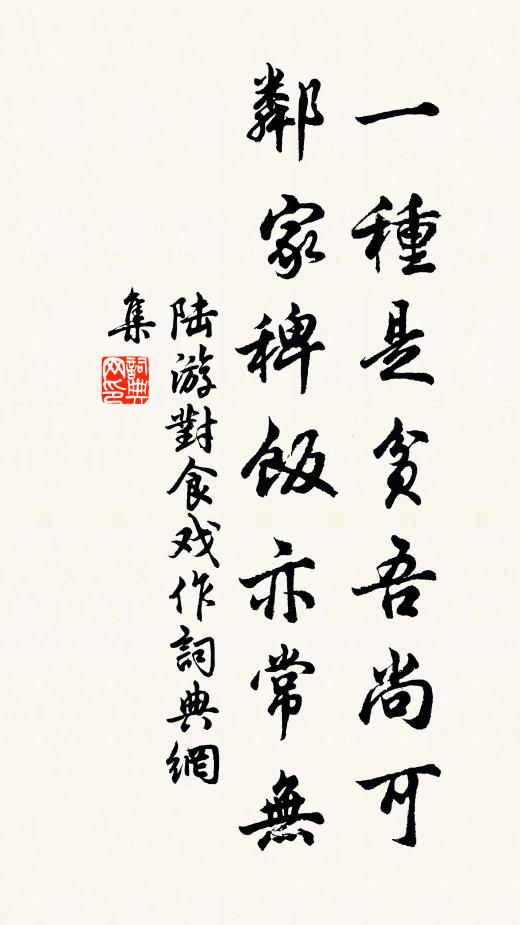 一種是貧吾尚可
鄰家稗飯亦常無
陸游對食戏作詞典網
集
詞典
网印